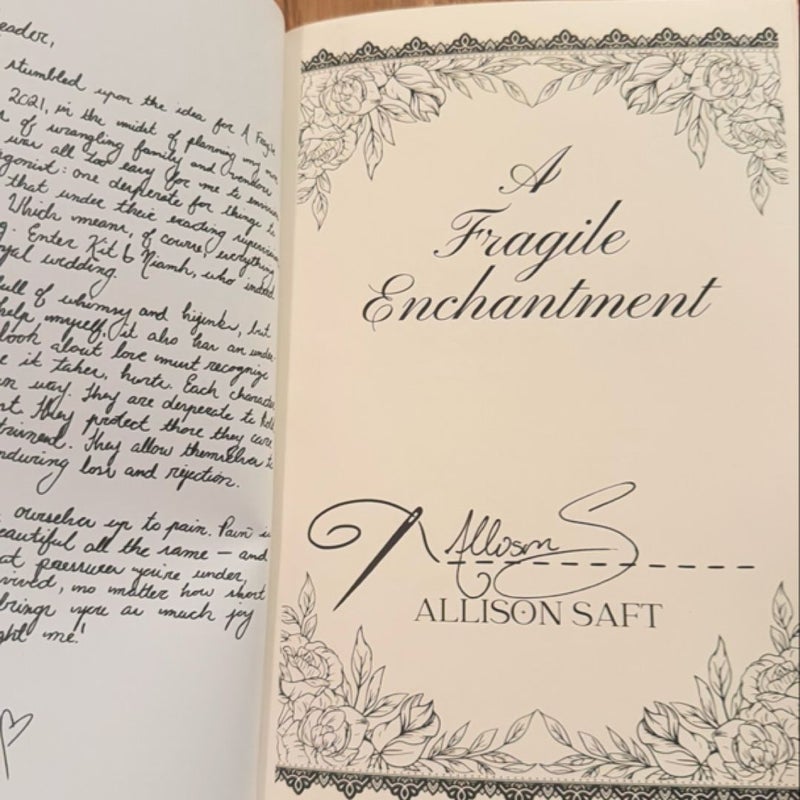 eader,
stumbled upon the idea for A Fragile
2021, in the midst of planning my own
of wrangling family and vendors
was all too easy for me to envision
agonist: one desperate for things to
that under their exacting supervision
Which means, of course, everything
g. Enter Kit & Niamh, who indeed
yal wedding.
full of whimsy and hijinks, but
help myself, it also has an under-
look about love must recognize
e it takes, hurts. Each character
n way. They are desperate to hold
nt. They protect those they care
They allow themselves to
nduring loss and rejection.
ourselves up to pain. Pain is
eautiful all the same — and
at pressures you're under,
vived, no matter how short
brings you as much joy
ght me!
A
Fragile
Enchantment
Allison S
ALLISON SAFT